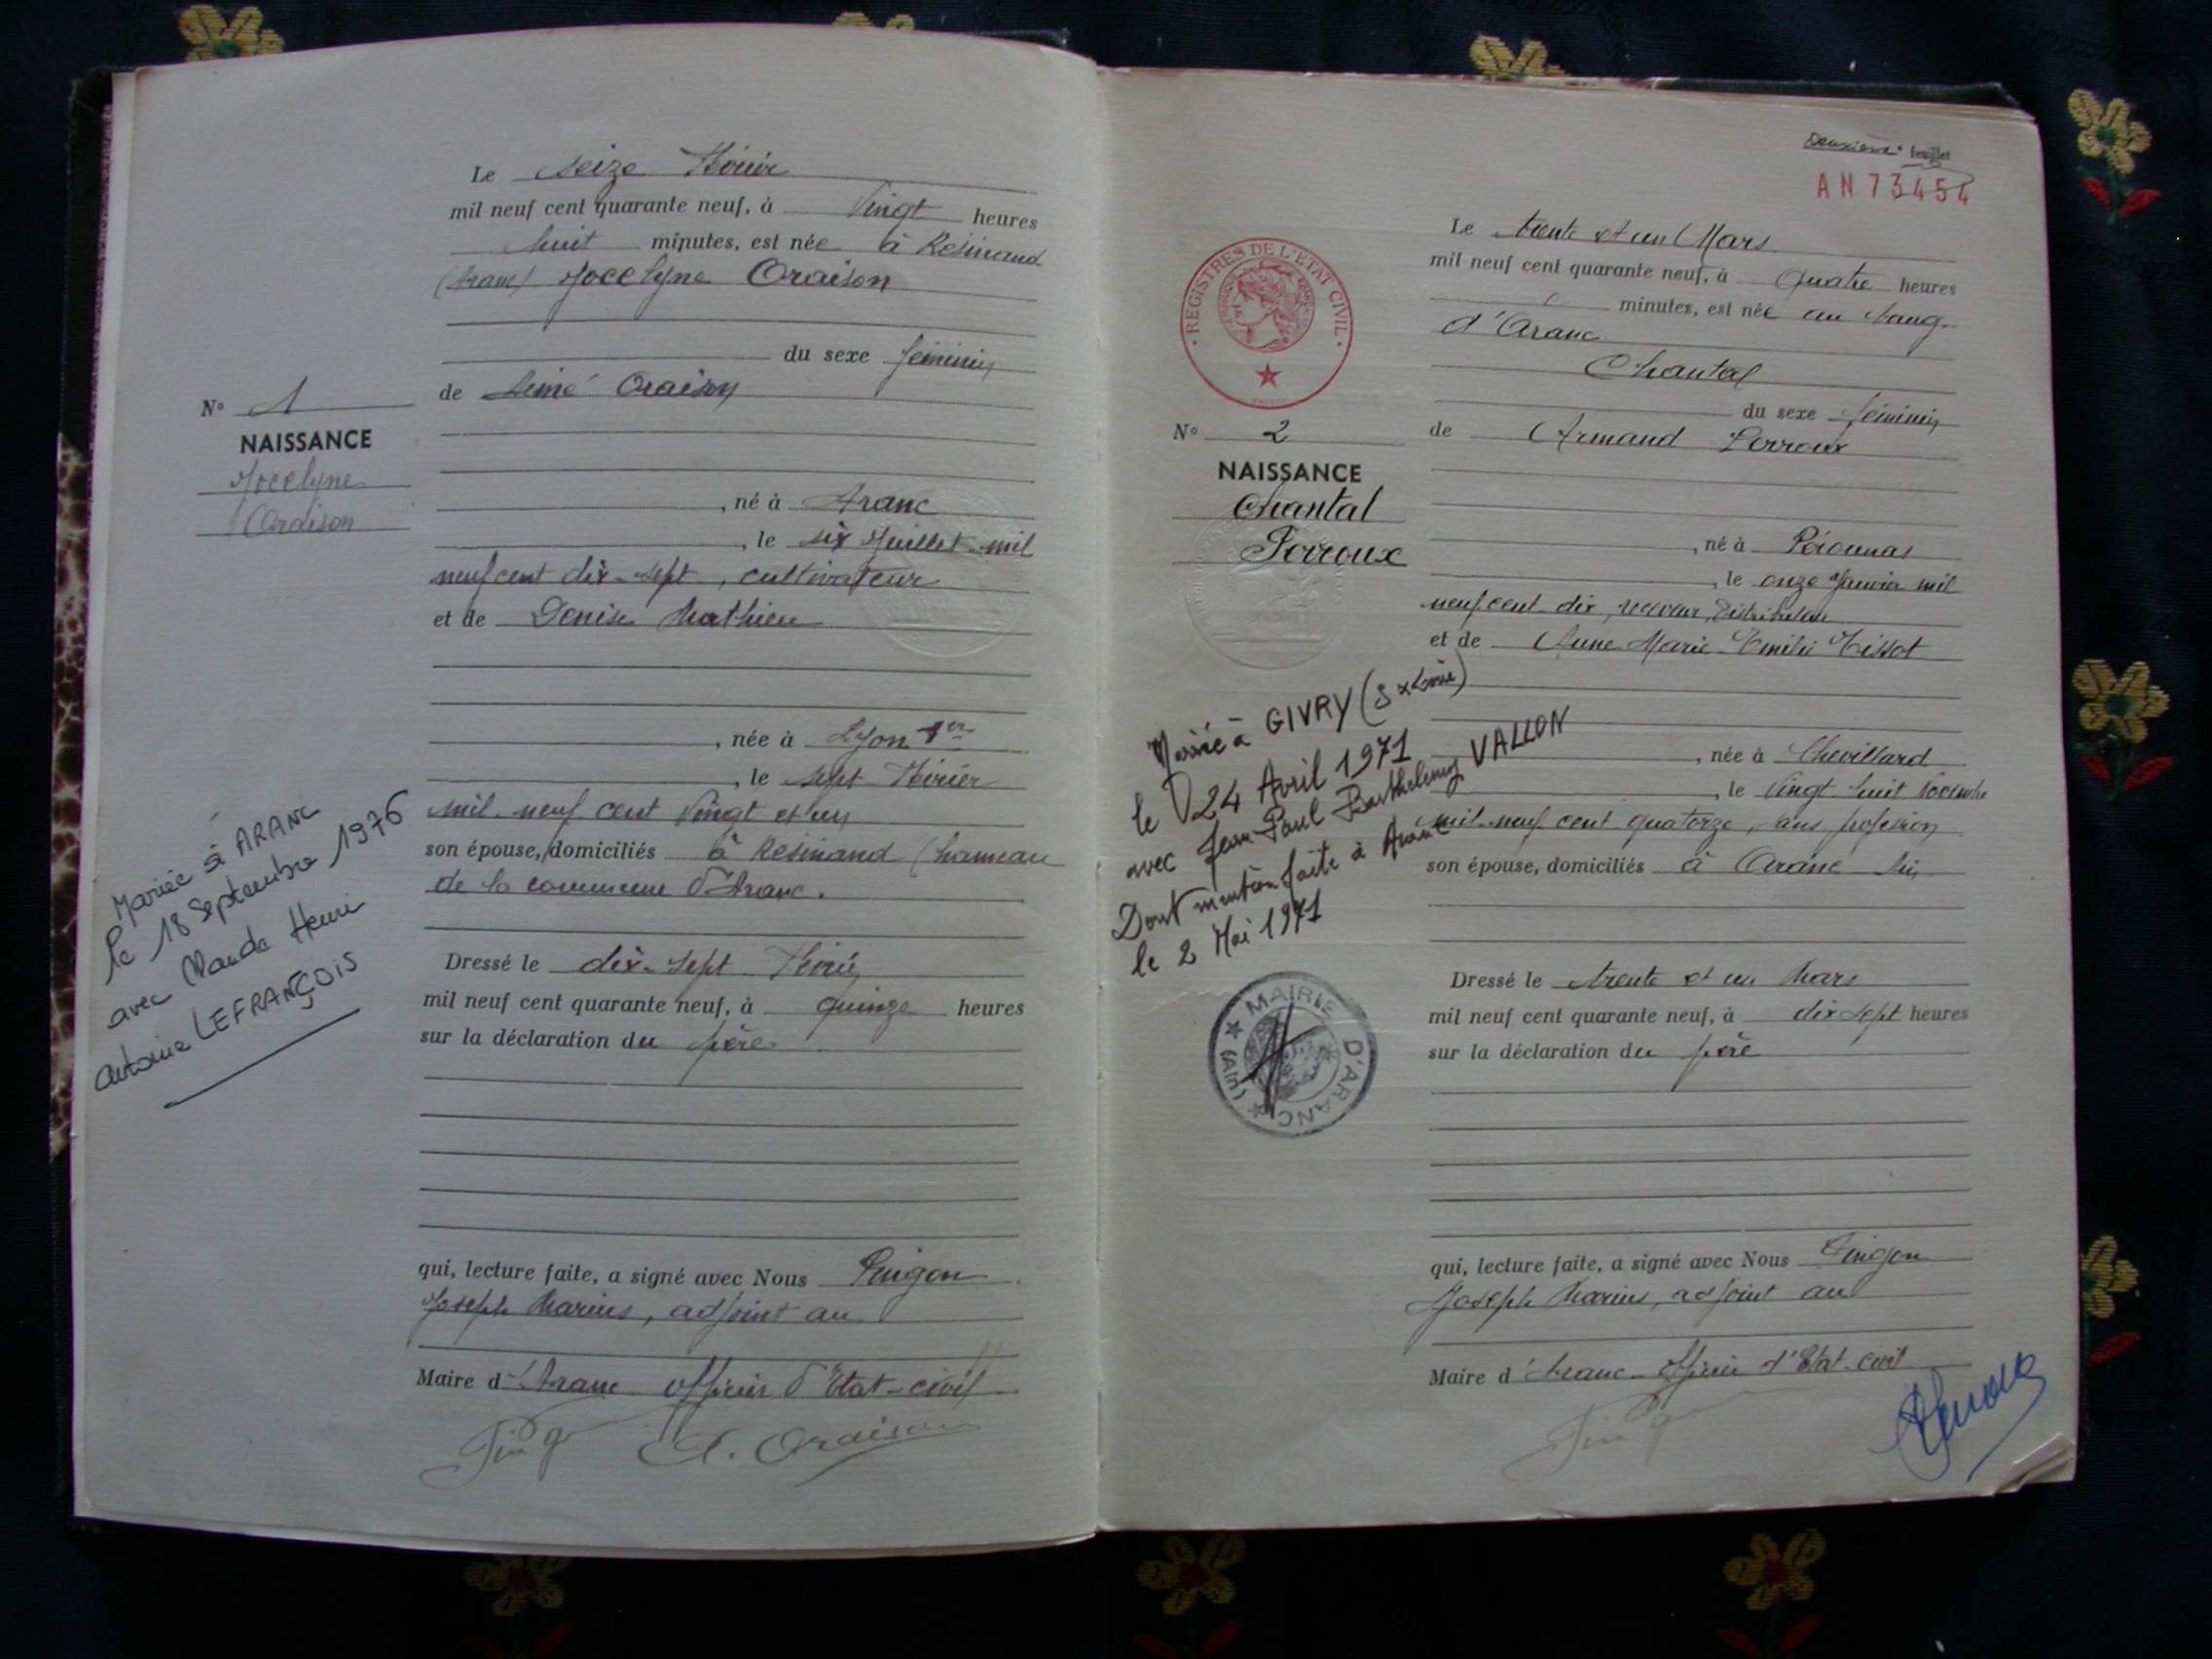 Le seize Février
mil neuf cent quarante neuf, à Vingt heures
huit minutes, est née à Résinand
(Aranc) Jocelyne Oraison
du sexe féminin
de Aimé Oraison
, né à Aranc
, le six Juillet mil
neuf cent dix-sept, cultivateur
et de Denise Mathieu
, née à Lyon 1er
, le sept Février
mil neuf cent Vingt et un
son épouse, domiciliés à Résinand (hameau
de la commune d'Aranc.
Dressé le dix-sept Février
mil neuf cent quarante neuf, à quinze heures
sur la déclaration du père
qui, lecture faite, a signé avec Nous Pingon
Joseph Marius, adjoint au
Maire d'Aranc officier d'Etat-civil
A. Oraison
N° 1
NAISSANCE
Jocelyne
Oraison
Mariée à ARANC
le 18 Septembre 1976
avec Claude Henri
Antoine LEFRANÇOIS
Deuxième feuillet
AN 73454
Le trente et un Mars
mil neuf cent quarante neuf, à Quatre heures
minutes, est née au
d'Aranc
Chantal
du sexe féminin
de Armand Perroux
, né à Péronnas
, le onze Janvier mil
neuf cent dix, receveur distributeur
et de Anne Marie Emilie Tissot
, née à Chevillard
, le Vingt huit
mil neuf cent quatorze, sans profession
son épouse, domiciliés à Aranc
Dressé le trente et un Mars
mil neuf cent quarante neuf, à dix sept heures
sur la déclaration du père
qui, lecture faite, a signé avec Nous Pingon
Joseph Marius, adjoint au
Maire d'Aranc officier d'Etat-civil
REGISTRES DE L'ETAT CIVIL
N° 2
NAISSANCE
Chantal
Perroux
Mariée à GIVRY (S x Loire)
le 24 Avril 1971
avec Jean-Paul Barthelemy VALLON
Dont mention faite à Aranc
le 2 Mai 1971
MAIRIE D'ARANC (AIN)